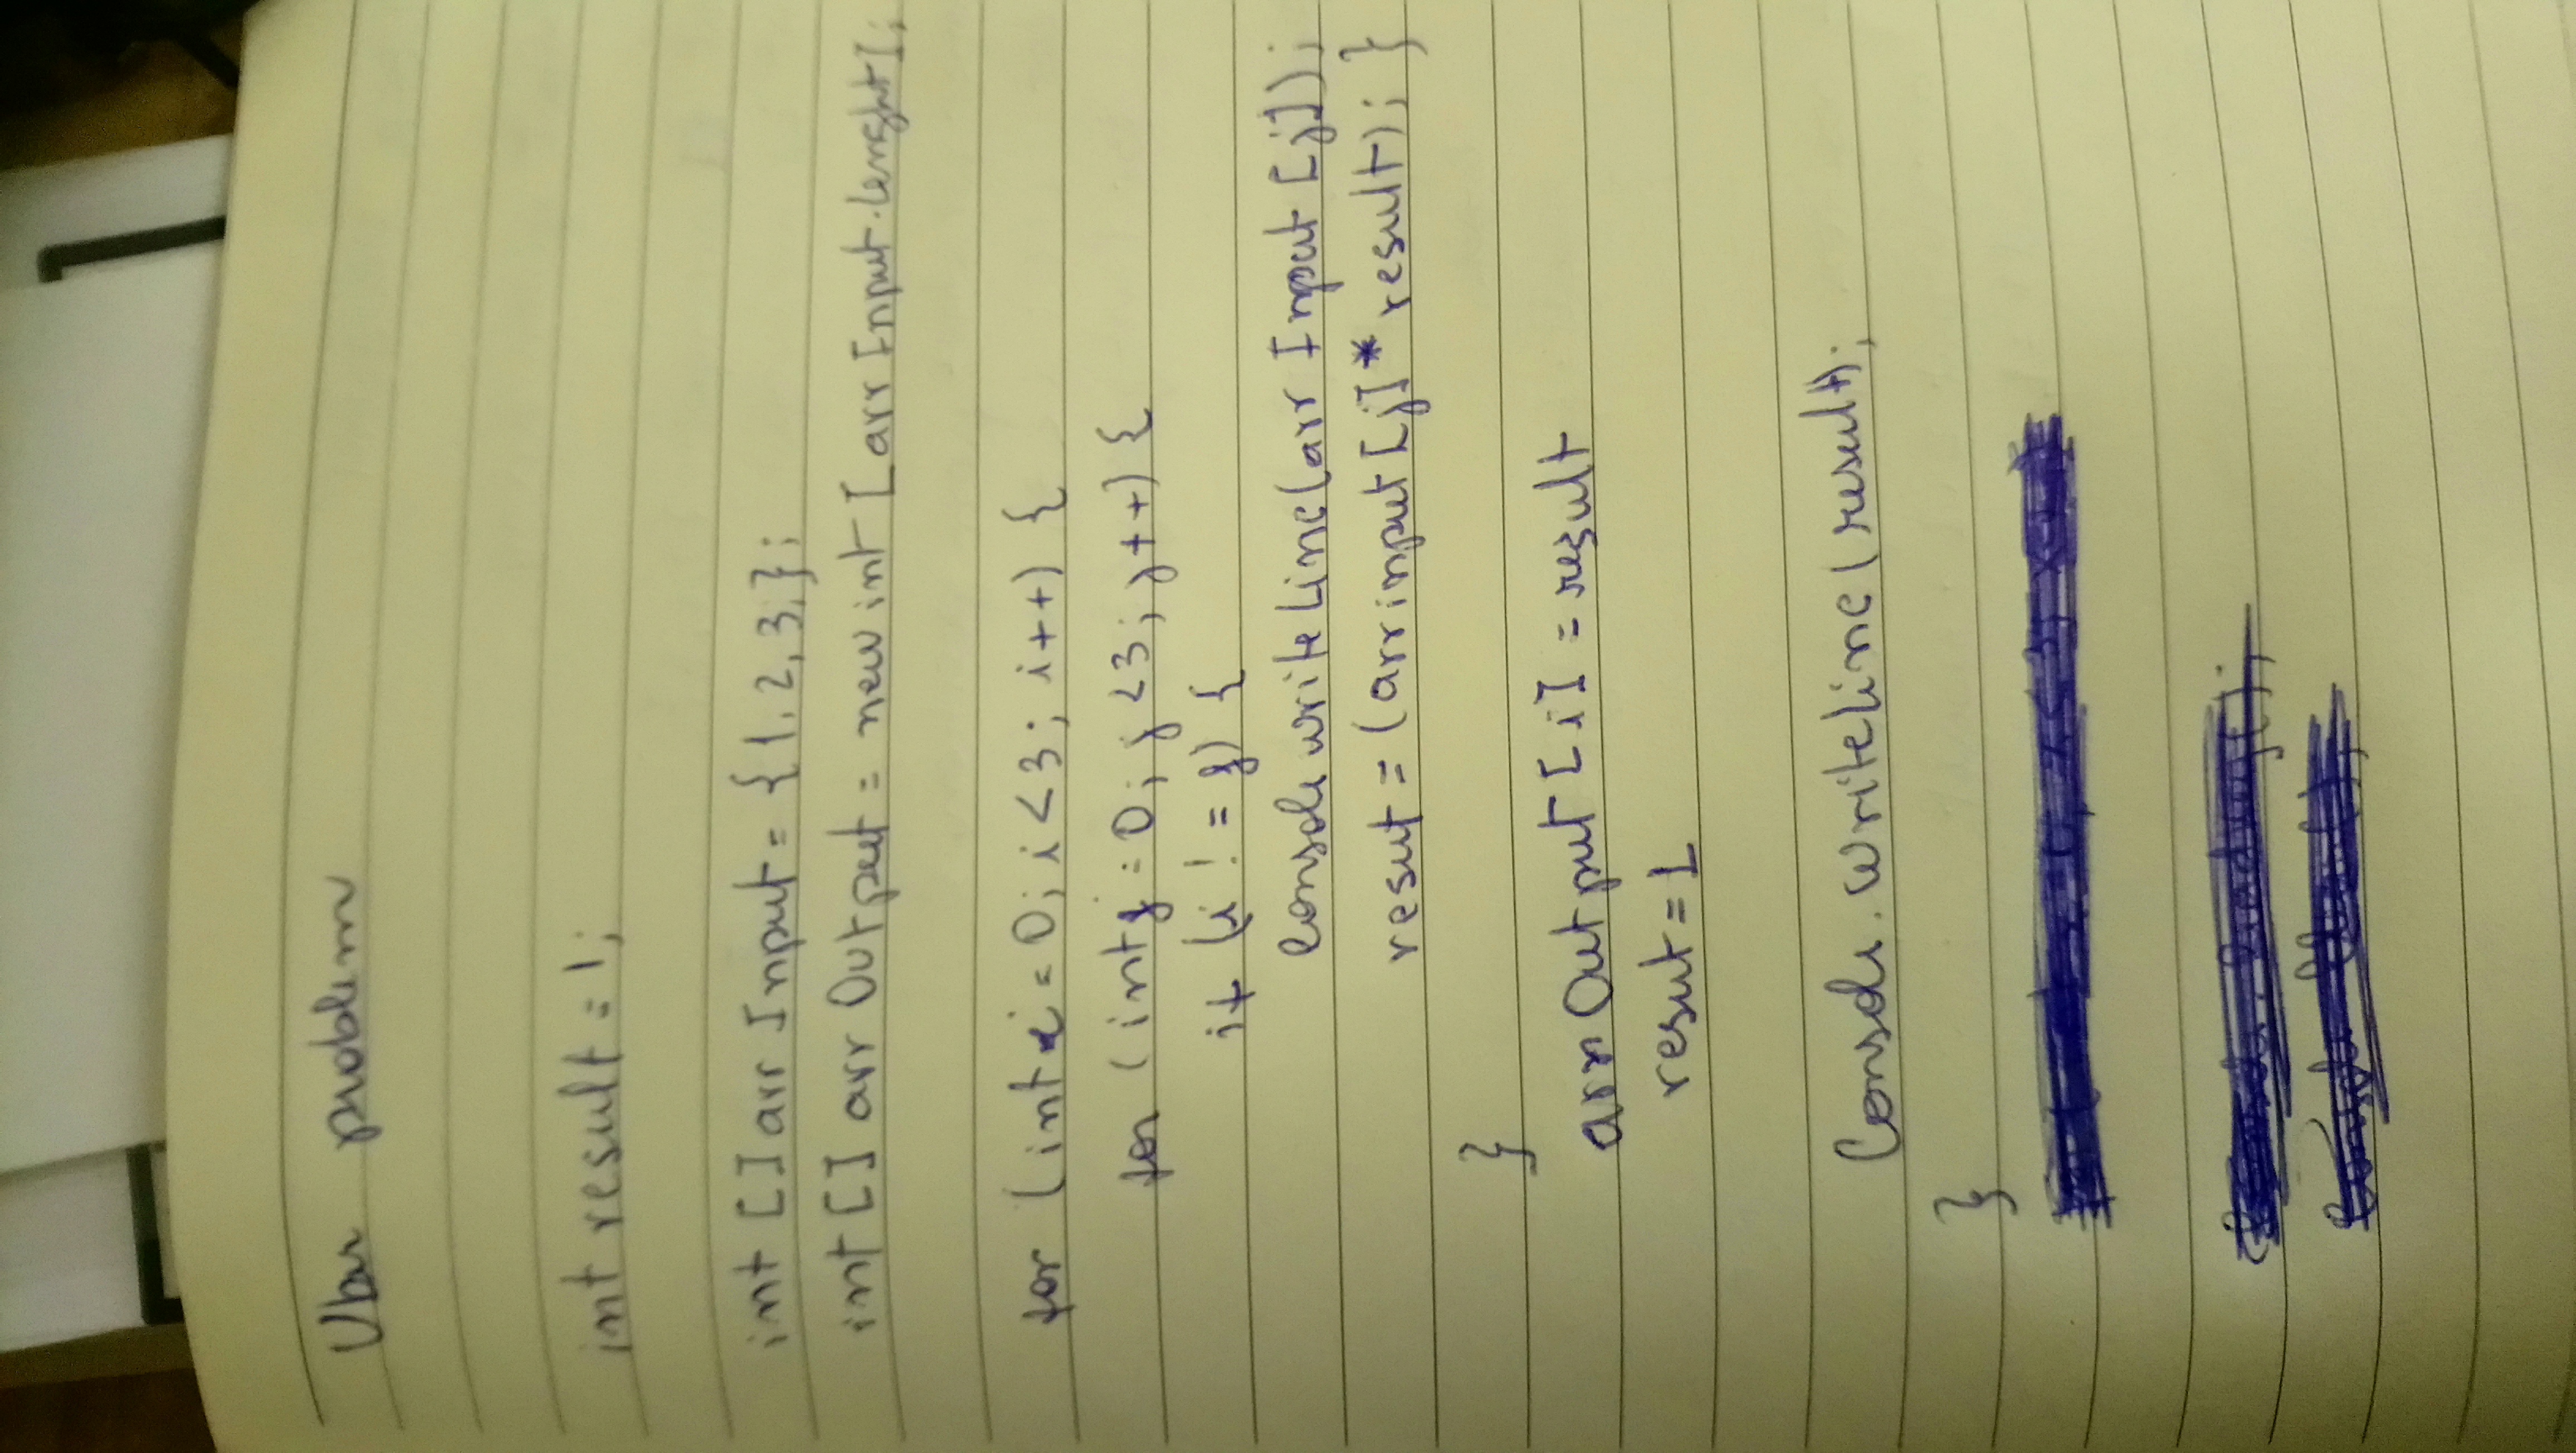 Uber problem
int result = 1;
int [] arr Input = {1, 2, 3,};
int [] arr Output = new int [arr Input.lenght];
for (int i = 0; i < 3; i++) {
for (int j = 0; j < 3; j++) {
if (i != j) {
Console write Line (arr Input [j]);
resut = (arrinput [j] * result); }
}
arr Output [i] = result
resut = 1
Console. WriteLine (result);
}